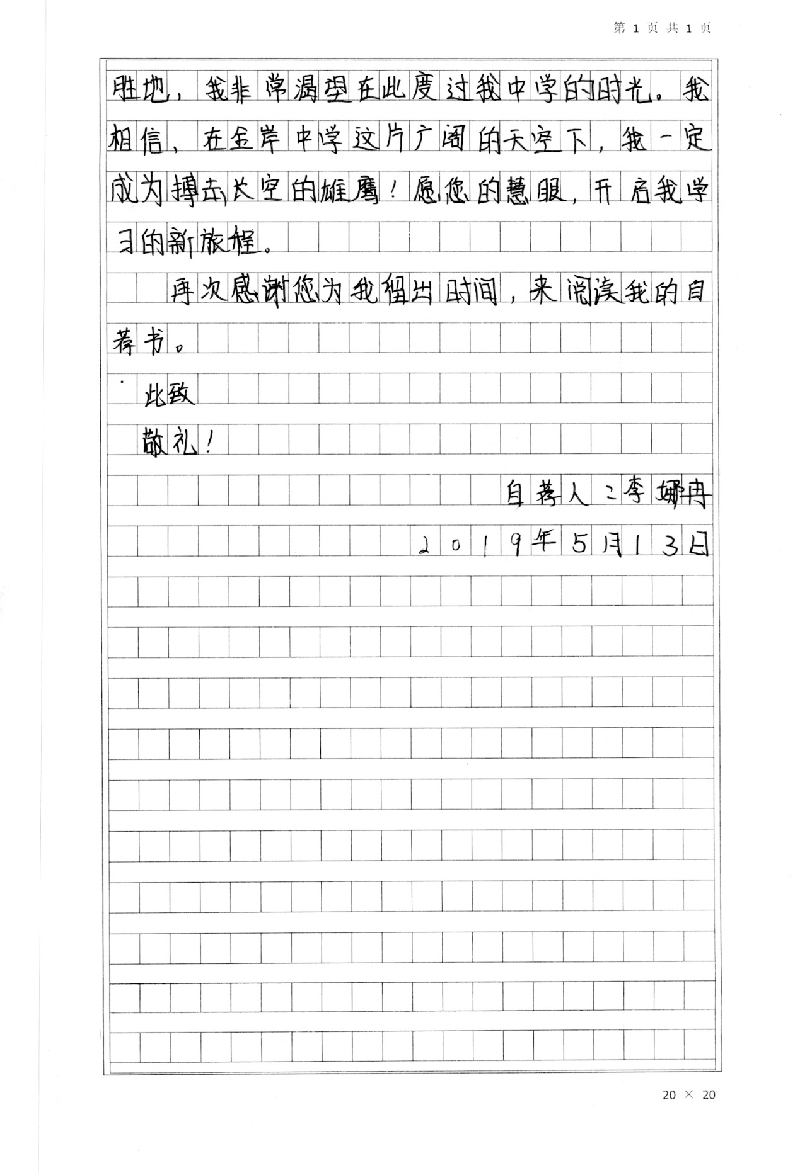 第 1 页 共 1 页
胜地，我非常渴望在此度过我中学的时光。我
相信、在金岸中学这片广阔的天空下，我一定
成为搏击长空的雄鹰！愿您的慧眼，开启我学
习的新旅程。
再次感谢您为我程出时间，来阅读我的自
荐书。
此致
敬礼！
自荐人：李娜冉
2019年5月13日
20 × 20